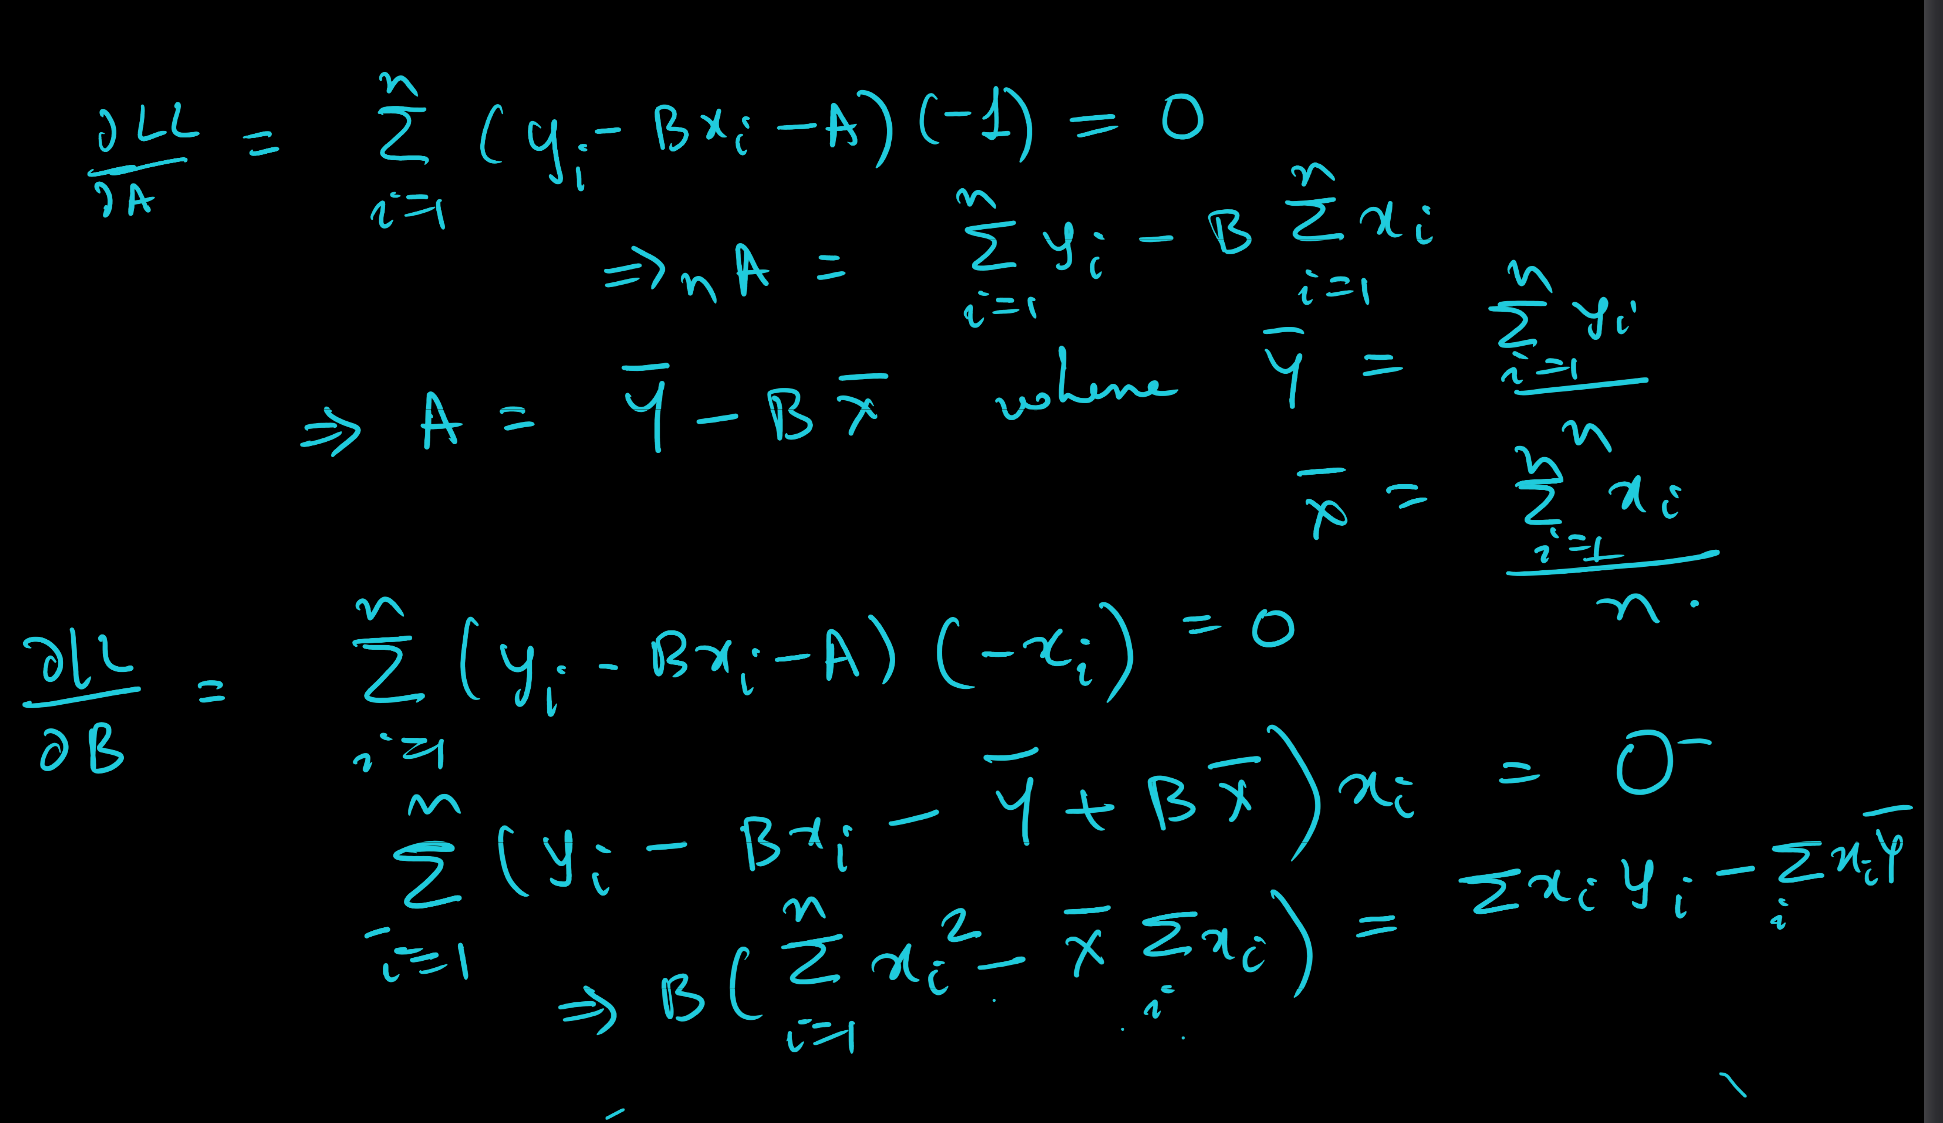 ∂LL/∂A = ∑_{i=1}^{n} (y_i - Bx_i - A)(-1) = 0
⇒ nA = ∑_{i=1}^{n} y_i - B ∑_{i=1}^{n} x_i
⇒ A = Y̅ - B x̅ where Y̅ = ∑_{i=1}^{n} y_i / n
x̅ = ∑_{i=1}^{n} x_i / n.
∂LL/∂B = ∑_{i=1}^{n} (y_i - Bx_i - A)(-x_i) = 0
∑_{i=1}^{n} (y_i - Bx_i - Y̅ + B x̅) x_i = 0
⇒ B(∑_{i=1}^{n} x_i^2 - x̅ ∑_i x_i) = ∑ x_i y_i - ∑_i x_i Y̅